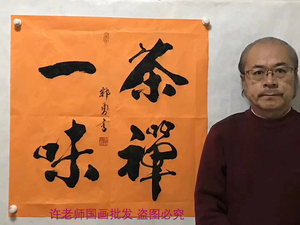 茶禪
一味
許老师国画批发 盗图必究